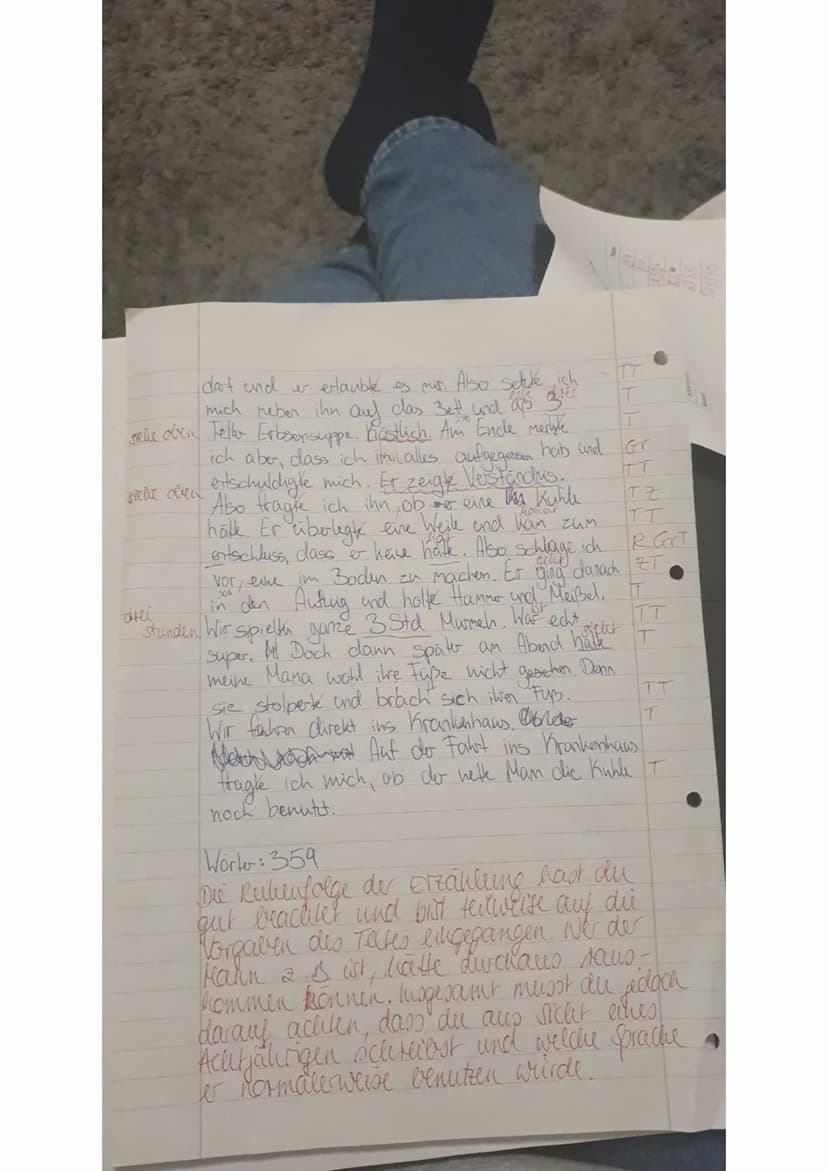 darf und er erlaubte es mir. Also setzte ich TT
mich neben ihn auf das Bett und aß 3 drei T
siehe oben Teller Erbsensuppe. Köstlich. Am Ende merkte T
ich aber, dass ich ihm alles aufgegessen hab und Gr
siehe oben entschuldigte mich. Er zeigte Verständnis. TT
Also fragte ich ihn, ob er eine Kuhle TZ
hätte. Er überlegte eine Weile und kam zum TT
entschluss, dass er keine hätte. Also schlage ich R GrT
vor, eine im Boden zu machen. Er ging danach ZT
in den Aufzug und holte Hammer und Meißel. T
drei stunden Wir spielten ganze 3 Std Murmeln. War echt TT
super. Doch dann später am Abend hatte T
meine Mama wohl ihre Füße nicht gesehen. Denn
sie stolperte und brach sich ihren Fuß. TT
Wir fahren direkt ins Krankenhaus. T
Auf der Fahrt ins Krankenhaus
fragte ich mich, ob der nette Mann die Kuhle T
noch benutzt.
Wörter: 359
Die Reihenfolge der Erzählung hast du
gut beachtet und bist teilweise auf die
Vorgaben des Textes eingegangen. Wer der
Mann z.B ist, hätte durchaus raus-
kommen können. Insgesamt musst du jedoch
darauf achten, dass du aus Sicht eines
Achtjährigen schreibst und welche Sprache
er normalerweise benutzen würde.